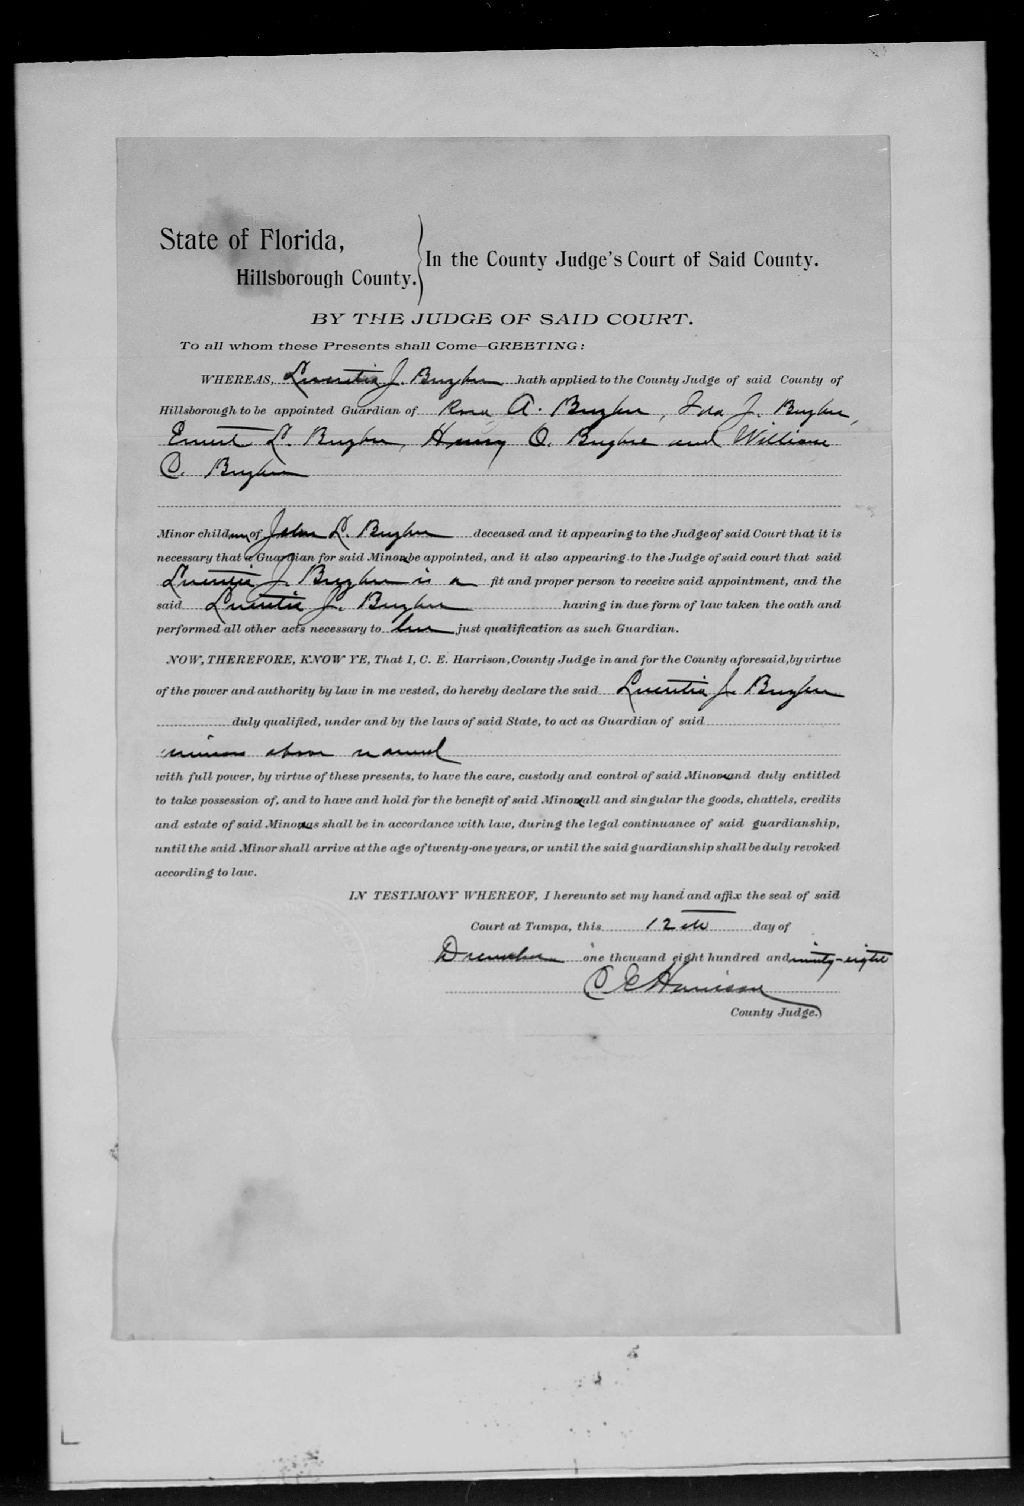 State of Florida,
Hillsborough County.
In the County Judge's Court of Said County.
BY THE JUDGE OF SAID COURT.
To all whom these Presents shall Come—GREETING:
WHEREAS, Lucretia J. hath applied to the County Judge of said County of
Hillsborough to be appointed Guardian of Rosa A. , Ida J. ,
Ernest L. , Henry O. and William
C.
Minor children of John L. deceased and it appearing to the Judge of said Court that it is
necessary that a Guardian for said Minors be appointed, and it also appearing to the Judge of said court that said
Lucretia J. is a fit and proper person to receive said appointment, and the
said Lucretia J. having in due form of law taken the oath and
performed all other acts necessary to her just qualification as such Guardian.
NOW, THEREFORE, KNOW YE, That I, C. E. Harrison, County Judge in and for the County aforesaid, by virtue
of the power and authority by law in me vested, do hereby declare the said Lucretia J.
duly qualified, under and by the laws of said State, to act as Guardian of said
minors above named
with full power, by virtue of these presents, to have the care, custody and control of said Minors and duly entitled
to take possession of, and to have and hold for the benefit of said Minors all and singular the goods, chattels, credits
and estate of said Minors as shall be in accordance with law, during the legal continuance of said guardianship,
until the said Minor shall arrive at the age of twenty-one years, or until the said guardianship shall be duly revoked
according to law.
IN TESTIMONY WHEREOF, I hereunto set my hand and affix the seal of said
Court at Tampa, this 12th day of
December one thousand eight hundred and ninety-eight
C E Harrison
County Judge.